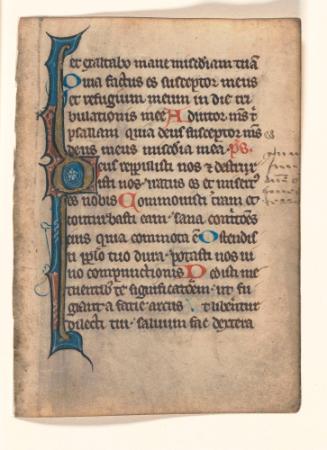 et exaltabo mane misc̄diam tuā
Quia factus es susceptor meus
et refugium meum in die tri
bulationis mee Adiutor m̄s t̄
psallam quia deus susceptor m̄s
deus meus misc̄dia mea. p̄s.
Deus reppulisti nos & destrux
isti nos iratus es et misert̄
es nobis Commouisti terram et
conturbasti eam sana contritōes
eius quia commota ē Ostendisti
pplo tuo dura potasti nos ui
no compunctionis Dedisti me
tuentib; te significatōem ut fu
giant a facie arcus Ut liberentur
dilecti tui saluum fac dextera